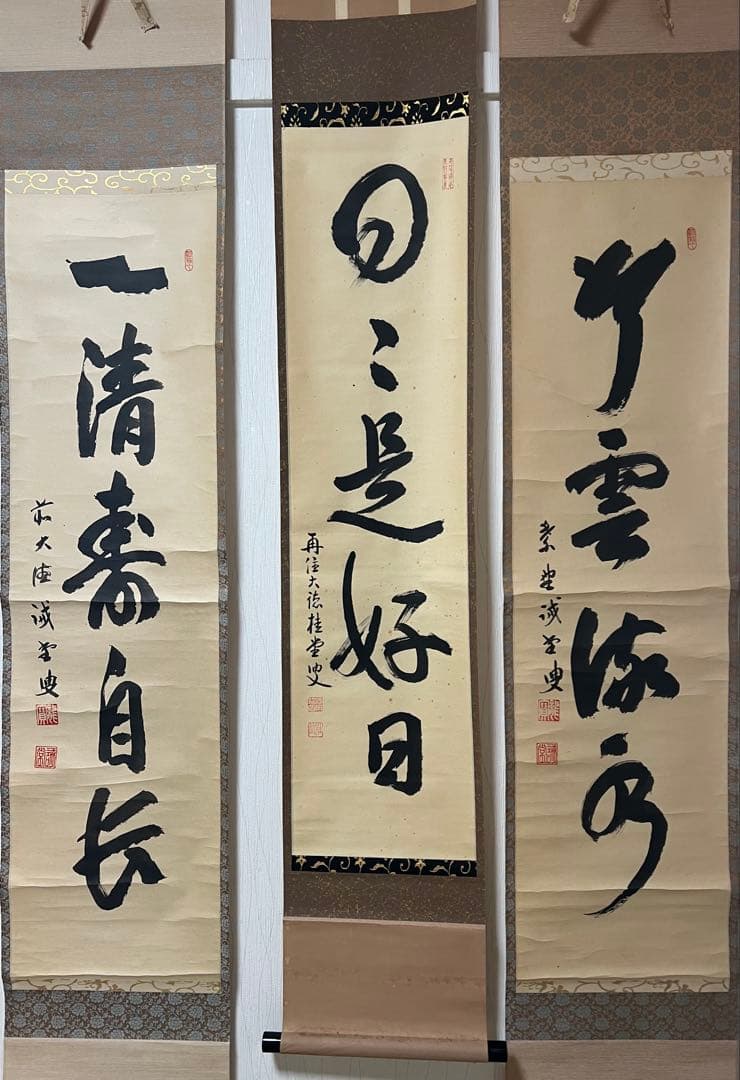 行雲流水
紫埜誠堂叟
日々是好日
再住大徳桂堂叟
一清壽自長
前大徳誠堂叟